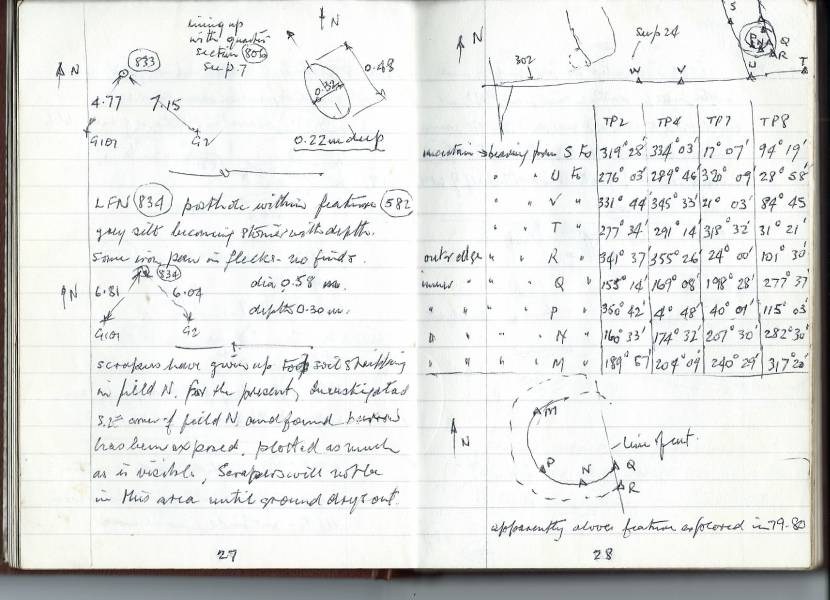 lining up
with quarter
section 806
see p. 7
N
0.48
0.32
0.22m deep
N
833
4.77
7.15
G101
G2
LFN 834 posthole within feature 582
grey silt becoming stonier with depth.
Some iron pan in flecks - no finds.
N
834
6.81
6.04
dia 0.58 m.
depth 0.30 m.
G101
G2
scrapers have given up soil stripping
in field N. for the present, investigated
corner of field N. and found barrow
has been exposed, plotted as much
as is visible, Scrapers will not be
in this area until ground drys out.
27
N
302
see p 24
S
P
N
Q
R
W
V
U
T
TP2 TP4 TP7 TP8
bearing from S to 319° 28' 334° 03' 17° 07' 94° 19'
" " U to 276° 03' 289° 46' 320° 09' 28° 58'
" " V " 331° 44' 345° 33' 21° 03' 84° 45
" " T " 277° 34' 291° 14' 318° 32' 31° 21'
outer edge " " R " 341° 37' 355° 26' 24° 00' 101° 30'
inner " " Q " 155° 14' 169° 08' 198° 28' 277° 37'
" " " P " 350° 42' 4° 48' 40° 01' 115° 03'
" " " N " 160° 33' 174° 32' 207° 30' 282° 30'
" " " M " 189° 57' 204° 09' 240° 29' 317° 20'
N
M
line of cut.
P
N
Q
R
apparently above feature explored in 79-80
28